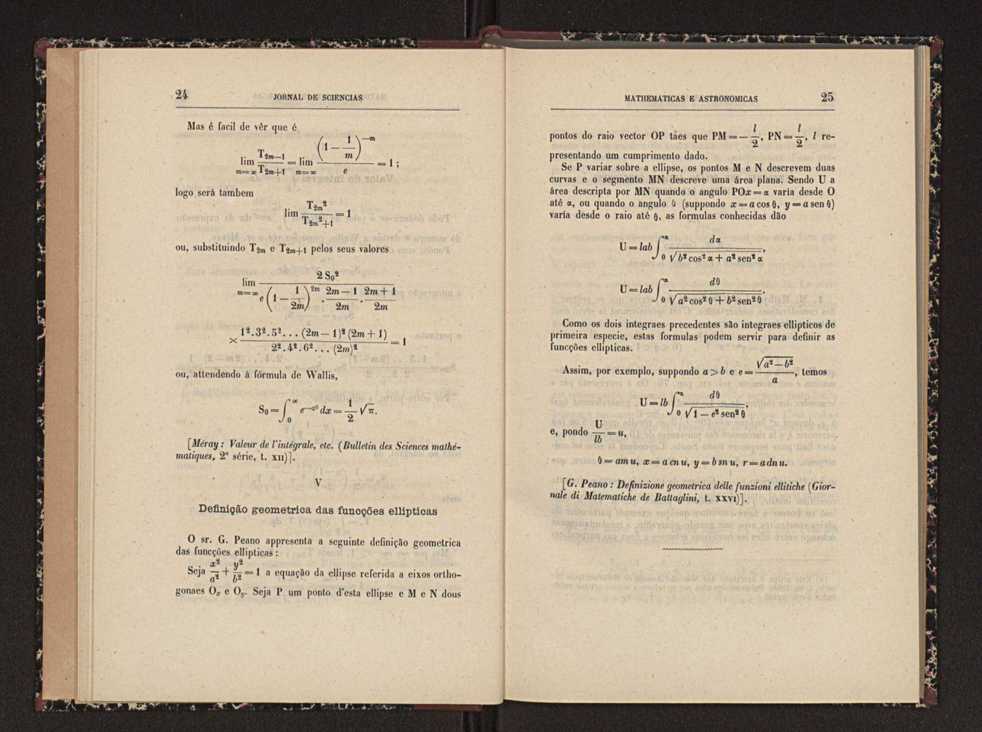 24 JORNAL DE SCIENCIAS
Mas é facil de vêr que é
lim_{m=∞} T_{2m−1} / T_{2m+1} = lim_{m=∞} (1 − 1/m)^{−m} / e = 1 ;
logo será tambem
lim T_{2m}² / T_{2m+1}² = 1
ou, substituindo T_{2m} e T_{2m+1} pelos seus valores
lim_{m=∞} 2 S₀² / e (1 − 1/2m)^{2m} · (2m − 1)/2m · (2m + 1)/2m
× 1².3².5²...(2m − 1)² (2m + 1) / 2².4².6²...(2m)² = 1
ou, attendendo á fórmula de Wallis,
S₀ = ∫₀^∞ e^{−x²} dx = 1/2 √π.
[Méray : Valeur de l'intégrale, etc. (Bulletin des Sciences mathé-
matiques, 2ª série, t. XII)].
V
Definição geometrica das funcções ellipticas
O sr. G. Peano appresenta a seguinte definição geometrica
das funcções ellipticas :
Seja x²/a² + y²/b² = 1 a equação da ellipse referida a eixos ortho-
gonaes Oₓ e O_y. Seja P um ponto d'esta ellipse e M e N dous
MATHEMATICAS E ASTRONOMICAS 25
pontos do raio vector OP táes que PM = − l/2, PN = l/2, l re-
presentando um cumprimento dado.
Se P variar sobre a ellipse, os pontos M e N descrevem duas
curvas e o segmento MN descreve uma área plana. Sendo U a
área descripta por MN quando o angulo POx = α varia desde O
até α, ou quando o angulo θ (suppondo x = a cos θ, y = a sen θ)
varía desde o raio até θ, as formulas conhecidas dão
U = lab ∫₀^α dα / √(b² cos² α + a² sen² α),
U = lab ∫₀^α dθ / √(a² cos² θ + b² sen² θ),
Como os dois integraes precedentes são integraes ellipticos de
primeira especie, estas formulas podem servir para definir as
funcções ellipticas.
Assim, por exemplo, suppondo a > b e e = √(a² − b²) / a, temos
U = lb ∫₀^α dθ / √(1 − e² sen² θ),
e, pondo U/lb = u,
θ = am u, x = a cn u, y = b sn u, r = a dn u.
[G. Peano : Definizione geometrica delle funzioni ellitiche (Gior-
nale di Matematiche de Battaglini, t. XXVI)].